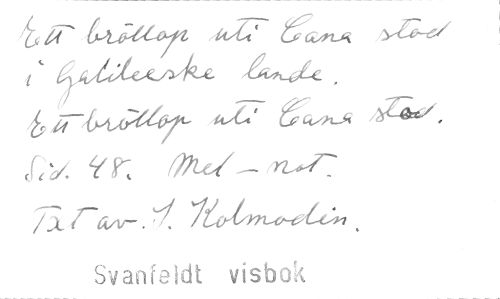 Ett bröllop uti Cana stod
i Galileeske lande.
Ett bröllop uti Cana stod.
Sid. 48. Mel-not.
Txt av. I. Kolmodin.
Svanfeldt visbok